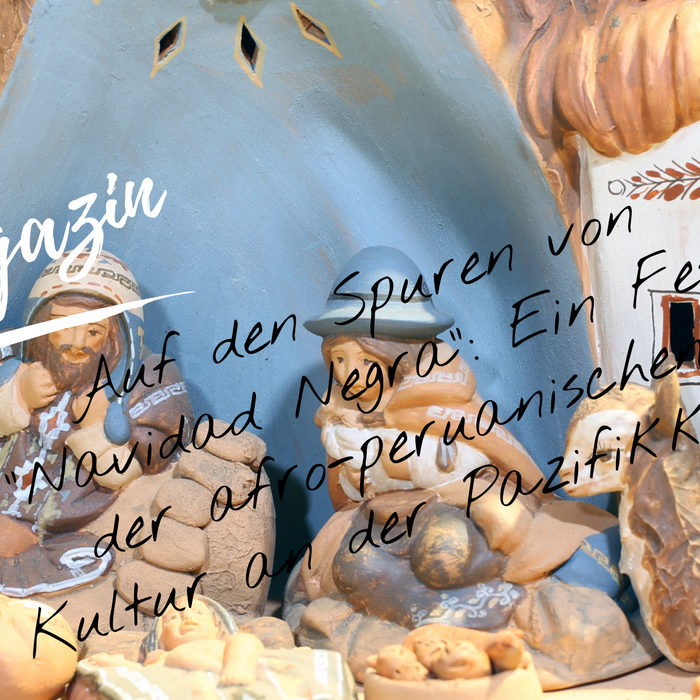 gazin
Auf den Spuren von
"Navidad Negra": Ein Fe
der afro-peruanischen
Kultur an der Pazifikk